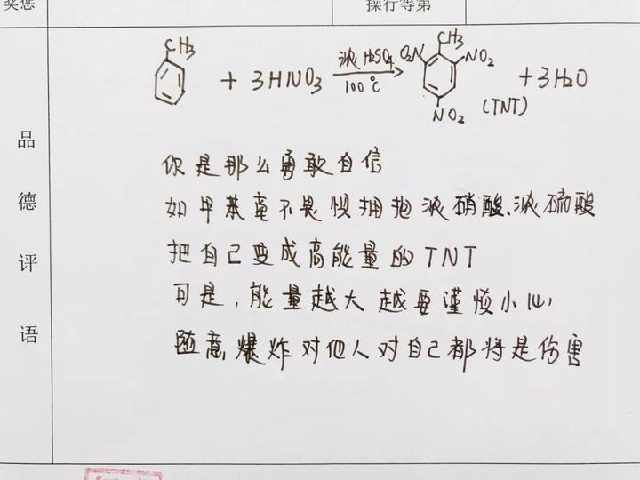 奖惩
操行等第
品德评语
CH3 + 3HNO3 浓H2SO4 100℃ CH3 O2N NO2 NO2 (TNT) + 3H2O
你是那么勇敢自信
如甲苯毫不畏惧拥抱浓硝酸、浓硫酸
把自己变成高能量的TNT
可是,能量越大越要谨慎小心
随意爆炸对他人对自己都将是伤害